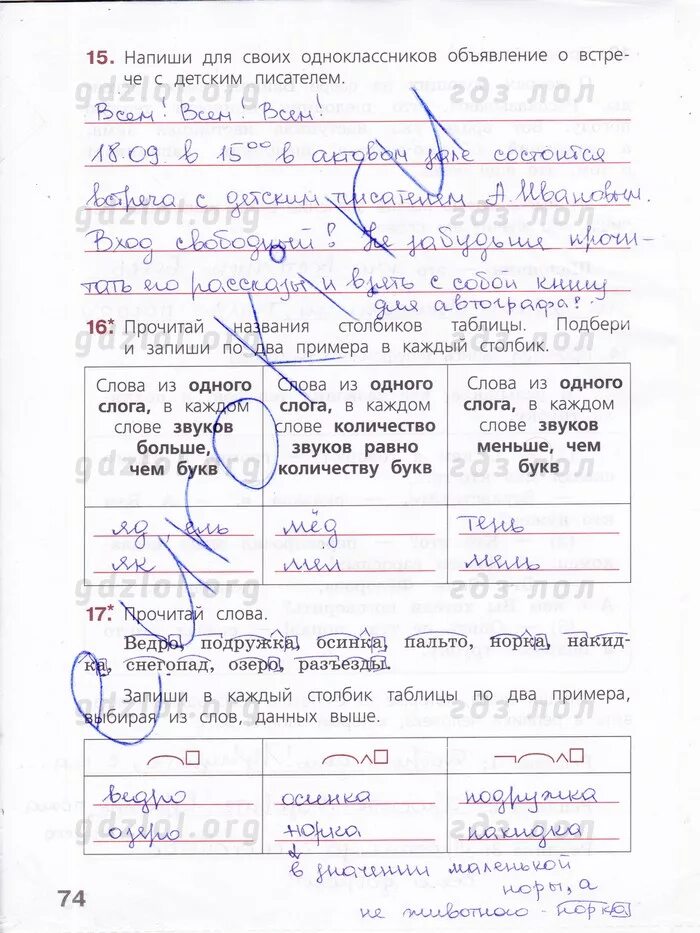 15. Напиши для своих одноклассников объявление о встре-
че с детским писателем.
gdzlol.org гдз лол
Всем! Всем! Всем!
18.09 в 15⁰⁰ в актовом зале состоится
встреча с детским писателем А.Ивановым.
gdzlol.org гдз лол
Вход свободный! Не забудьте прочи-
тать его рассказы и взять с собой книгу
для автографа!
16* Прочитай названия столбиков таблицы. Подбери
и запиши по два примера в каждый столбик.
gdzlol.org гдз лол
Слова из одного
слога, в каждом
слове звуков
больше,
чем букв
Слова из одного
слога, в каждом
слове количество
звуков равно
количеству букв
Слова из одного
слога, в каждом
слове звуков
меньше, чем
букв
gdzlol.org гдз лол
яд, ель
як
мёд
мел
тень
мель
gdzlol.org гдз лол
17* Прочитай слова.
Ведро, подружка, осинка, пальто, норка, накид-
ка, снегопад, озеро, разъезды.
gdzlol.org гдз лол
Запиши в каждый столбик таблицы по два примера,
выбирая из слов, данных выше.
ведро
озеро
осинка
норка
подружка
накидка
gdzlol.org гдз лол
в значении маленькой
норы, а
не животного - норка
74